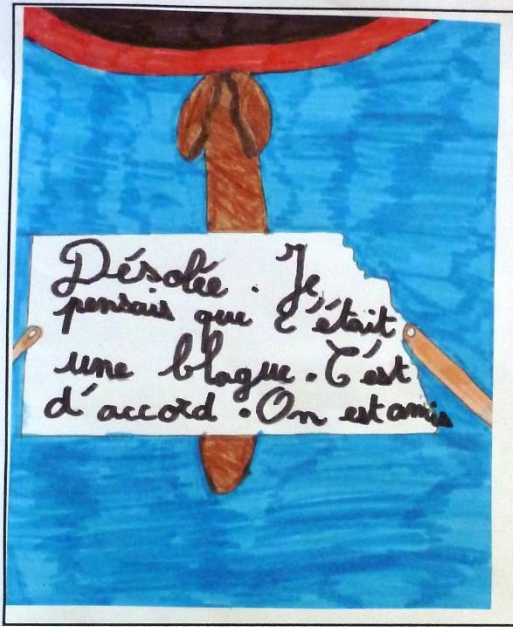 Désolée. Je
pensais que c'était
une blague. C'est
d'accord. On est amis